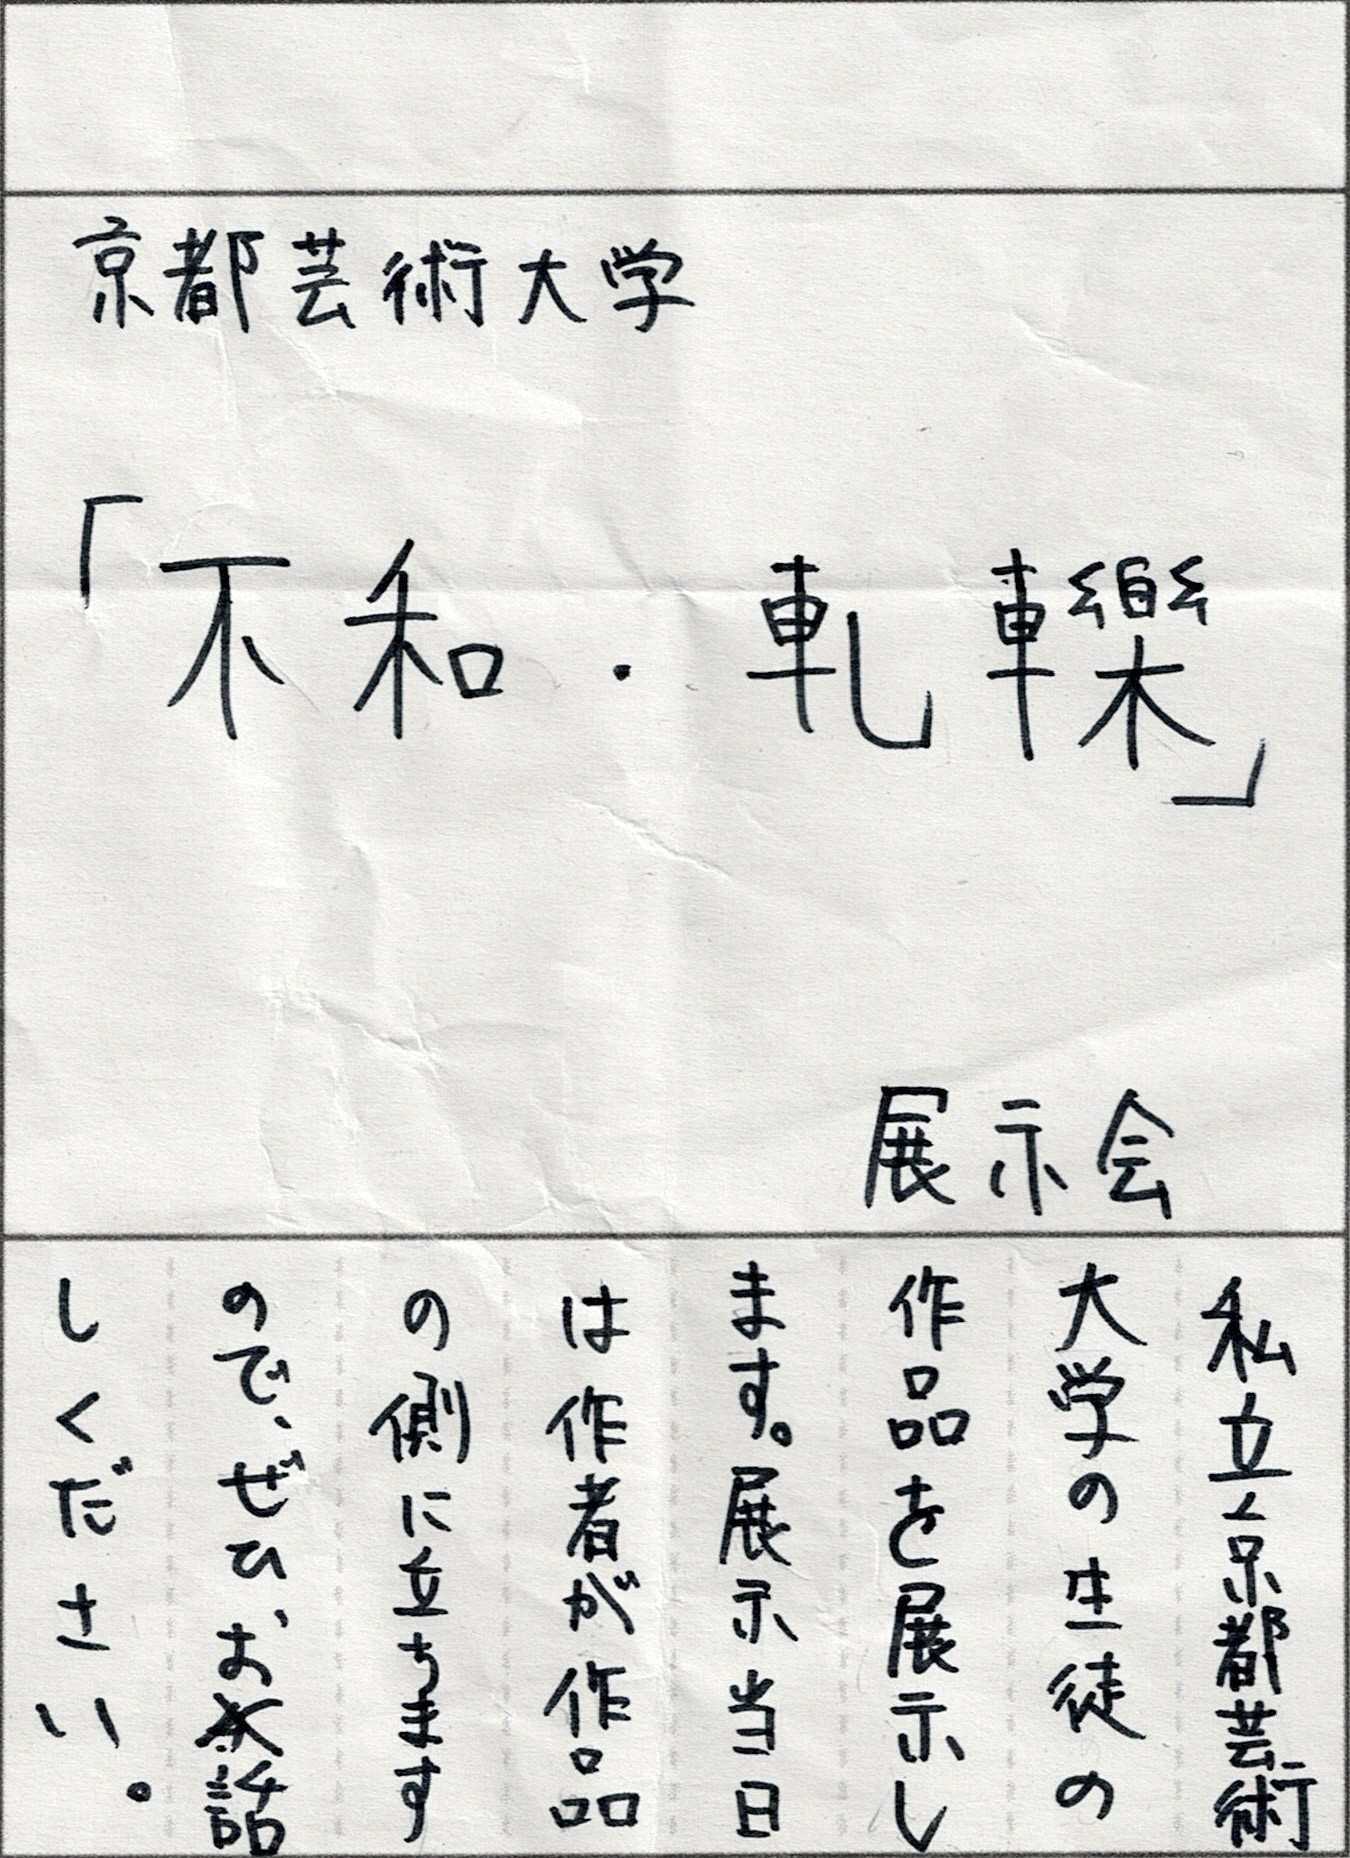 京都芸術大学
「不和・軋轢」
展示会
私立京都芸術
大学の生徒の
作品を展示し
ます。展示当日
は作者が作品
の側に立ちます
ので、ぜひ、お話
しください。